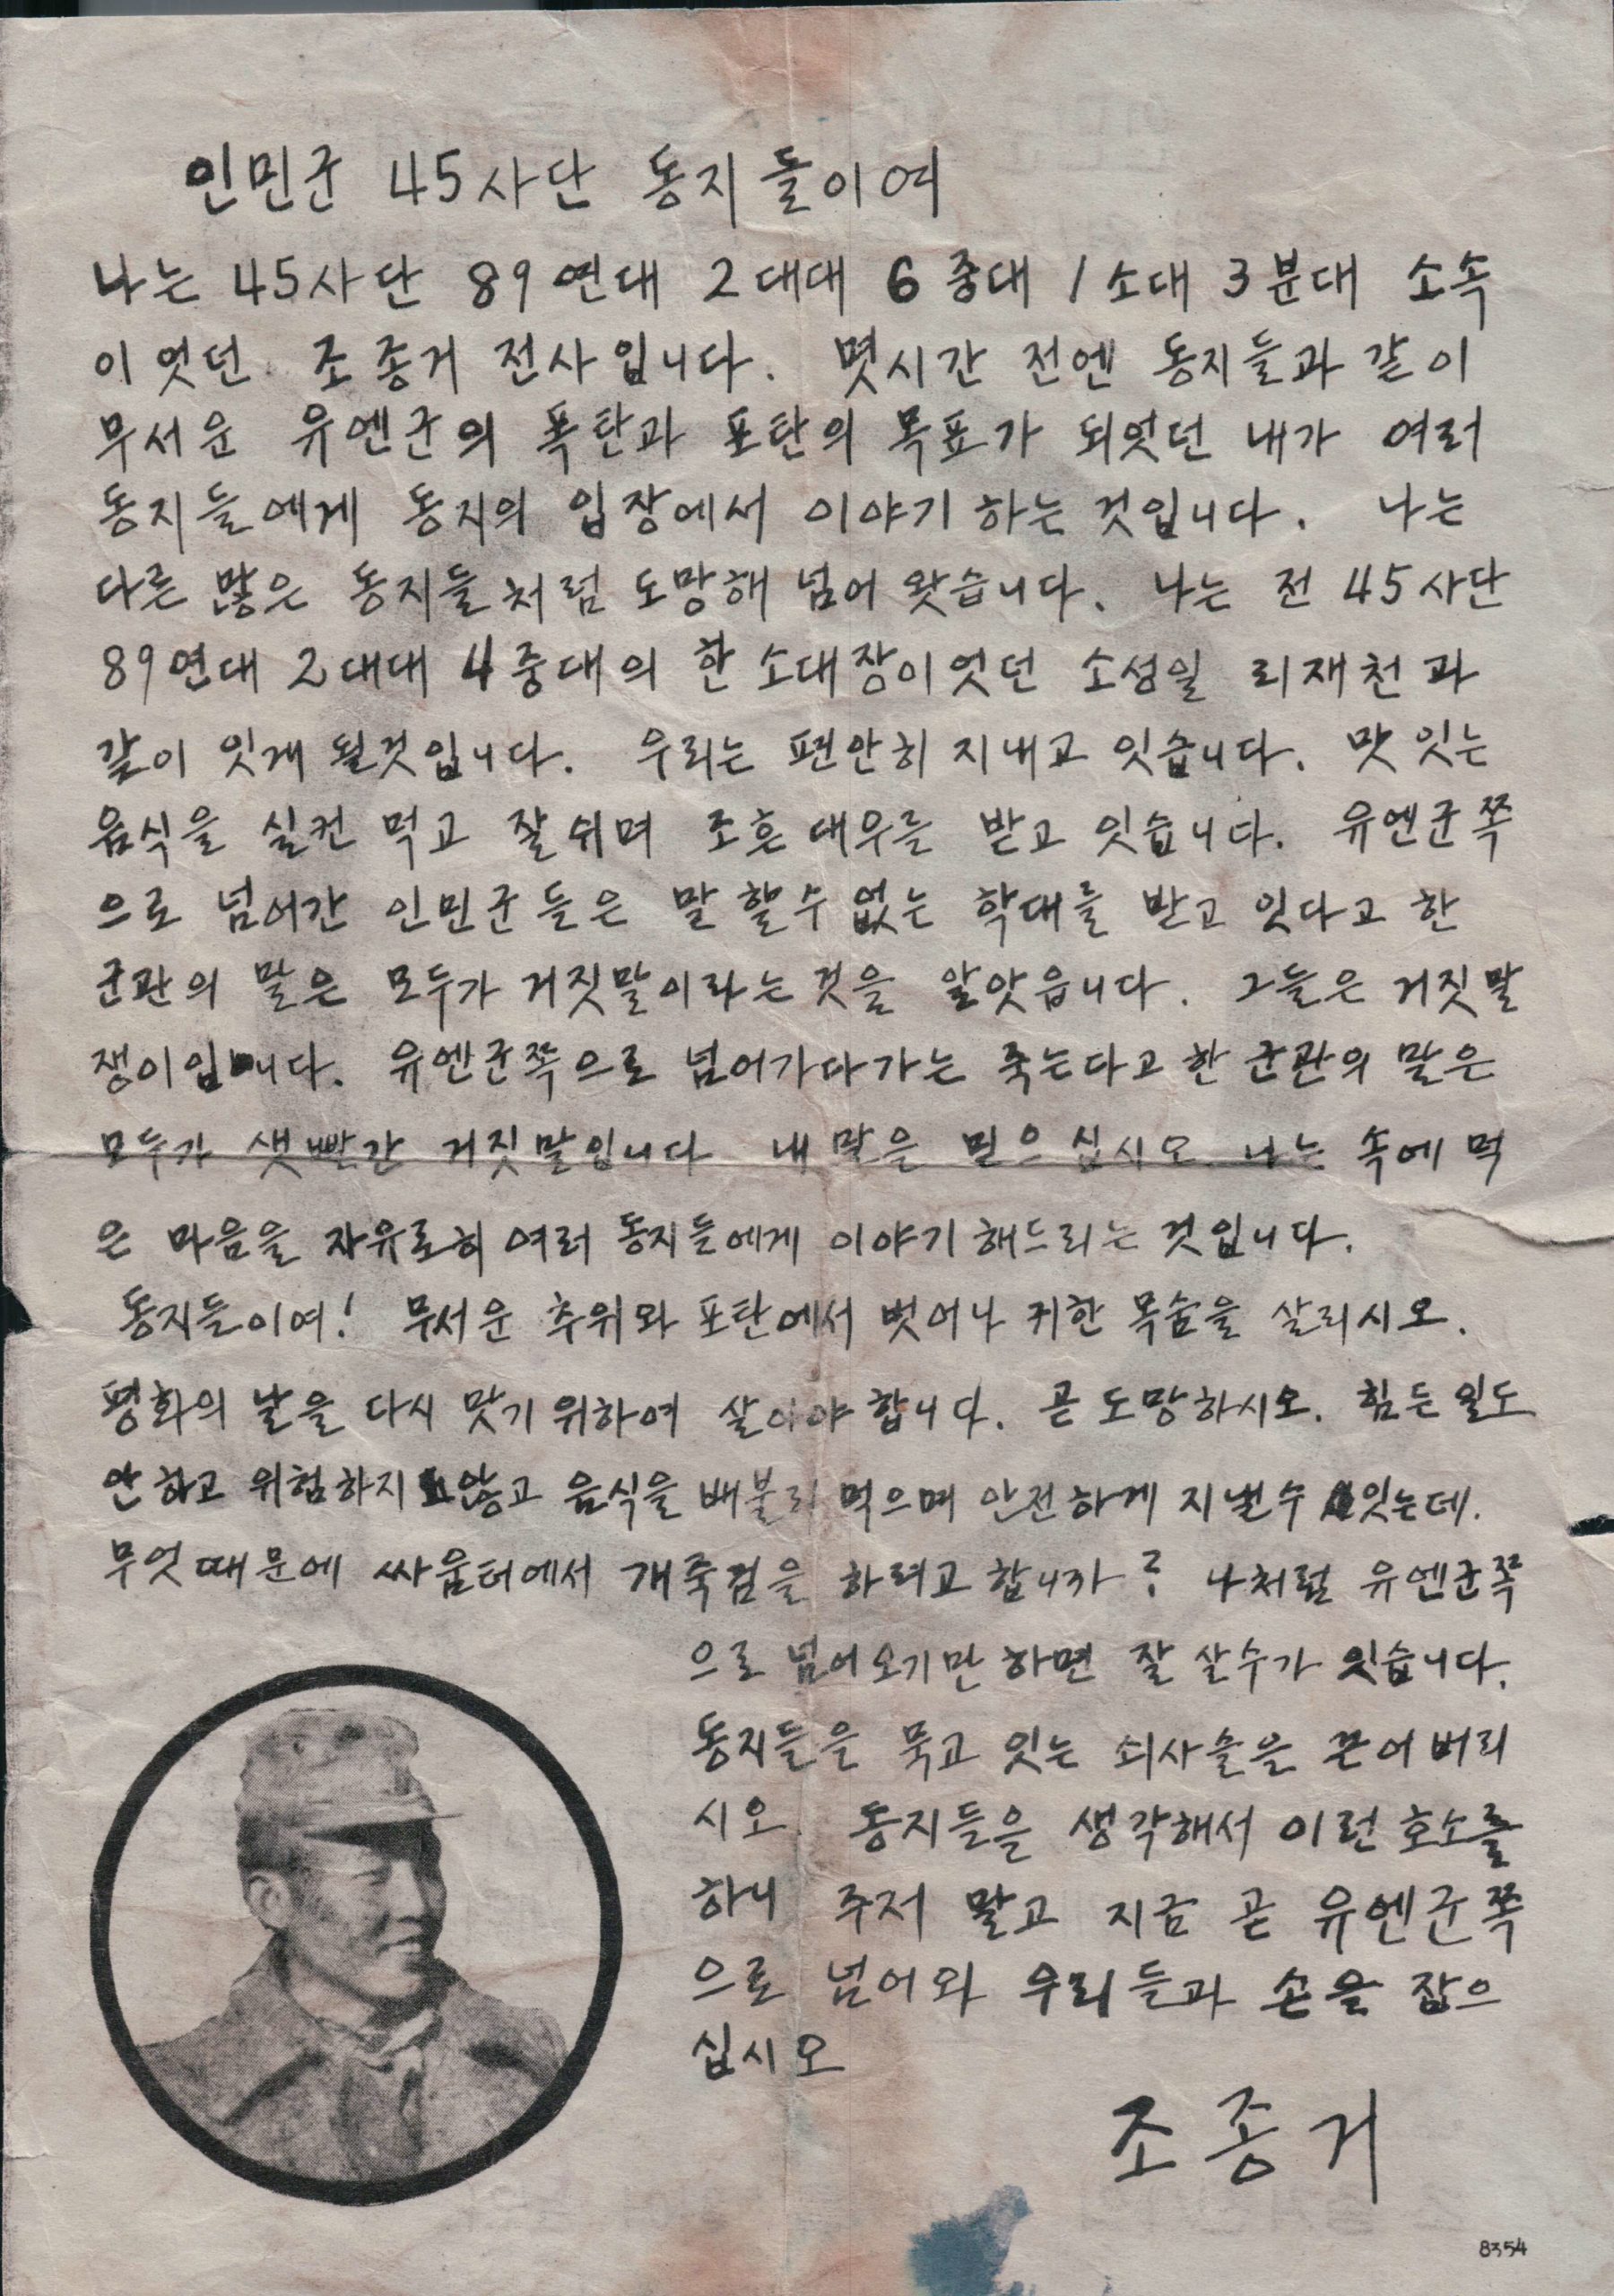 인민군 45사단 동지들이여
나는 45사단 89연대 2대대 6중대 1소대 3분대 소속
이엇던 조종거 전사입니다. 몇시간 전엔 동지들과 같이
무서운 유엔군의 폭탄과 포탄의 목표가 되엇던 내가 여러
동지들에게 동지의 입장에서 이야기 하는 것입니다. 나는
다른 많은 동지들처럼 도망해 넘어 왓습니다. 나는 전 45사단
89연대 2대대 4중대의 한 소대장이엇던 소성일 리재천과
같이 잇게 될것입니다. 우리는 편안히 지내고 잇습니다. 맛 잇는
음식을 실컨 먹고 잘쉬며 조흔 대우를 받고 잇습니다. 유엔군쪽
으로 넘어간 인민군들은 말할수 없는 학대를 받고 잇다고 한
군관의 말은 모두가 거짓말이라는 것을 알앗읍니다. 그들은 거짓말
쟁이입니다. 유엔군쪽으로 넘어가다가는 죽는다고 한 군관의 말은
모두가 샛빨간 거짓말입니다 내 말을 믿으십시오. 나는 속에 먹
은 마음을 자유로히 여러 동지들에게 이야기 해드리는 것입니다.
동지들이여! 무서운 추위와 포탄에서 벗어나 귀한 목숨을 살리시오.
평화의 날을 다시 맛기 위하여 살아야 합니다. 곧 도망하시오. 힘든 일도
안하고 위험하지 않고 음식을 배불리 먹으며 안전하게 지낼수 잇는데.
무엇때문에 싸움터에서 개죽검을 하려고 합니까? 나처럼 유엔군쪽
으로 넘어오기만 하면 잘 살수가 잇습니다.
동지들을 묶고 잇는 쇠사슬을 끈어 버리
시오. 동지들을 생각해서 이런 호소를
하니 주저 말고 지금 곧 유엔군쪽
으로 넘어와 우리들과 손을 잡으
십시오
조종거
8354